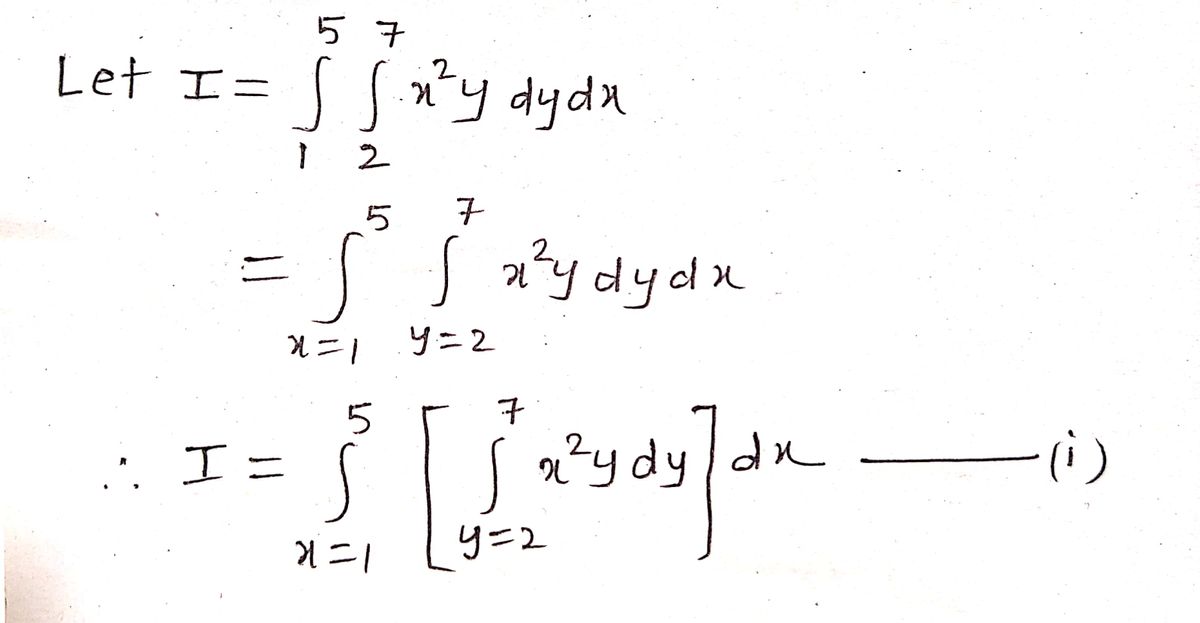 Let I = ∫₁⁵ ∫₂⁷ x²y dydx
= ∫ₓ₌₁⁵ ∫_{y=2}^{7} x²y dydx
∴ I = ∫ₓ₌₁⁵ [∫_{y=2}^{7} x²y dy] dx ——— (i)